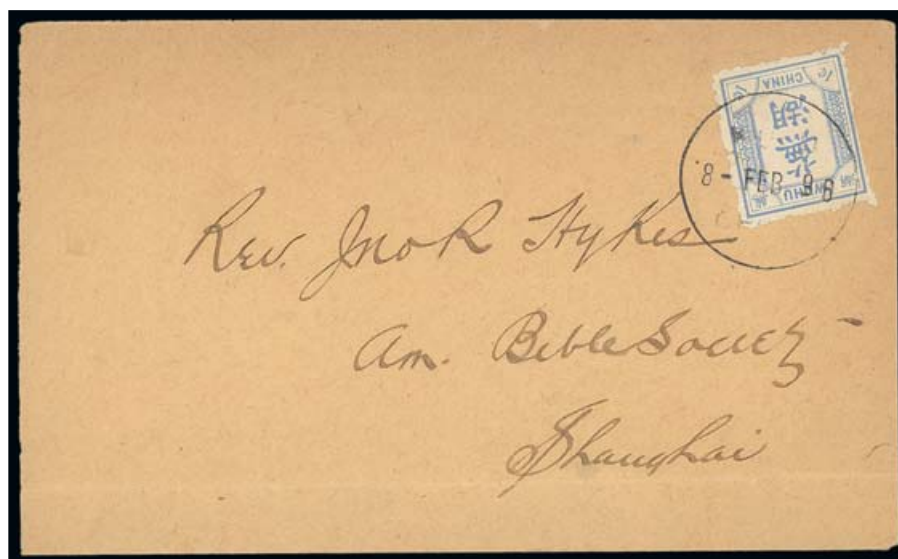 1c CHINA 1c
蕪湖
WUHU
8 - FEB 96
Rev. Jno R Hykes
Am. Bible Society
Shanghai